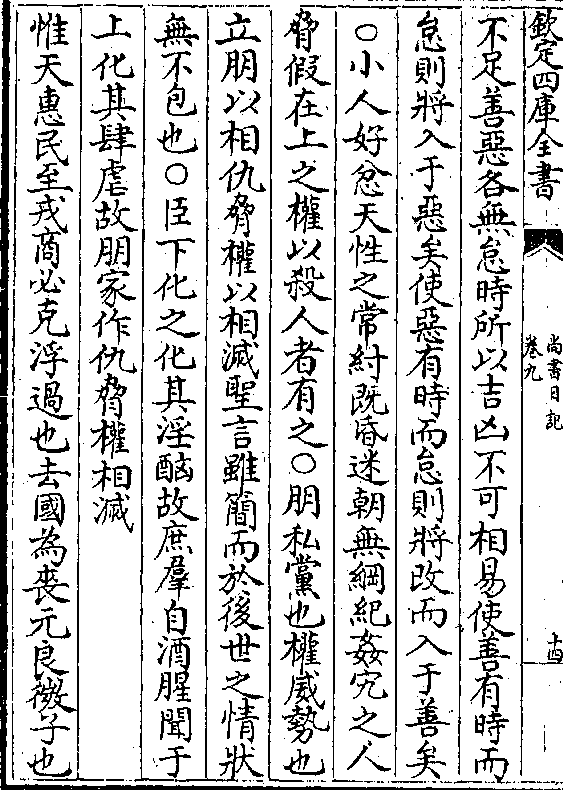 欽定四庫全書
尚書日記
卷九
十四
不足善惡各無怠時所以吉凶不可相易使善有時而
怠則將入于惡矣使惡有時而怠則將改而入于善矣
○小人好忿天性之常紂既昏迷朝無綱紀姦宄之人
脅假在上之權以殺人者有之○朋私黨也權威勢也
立朋以相仇脅權以相滅聖言雖簡而於後世之情狀
無不包也○臣下化之化其淫酗故庶羣自酒腥聞于
上化其肆虐故朋家作仇脅權相滅
惟天惠民至戎商必克浮過也去國為喪元良微子也